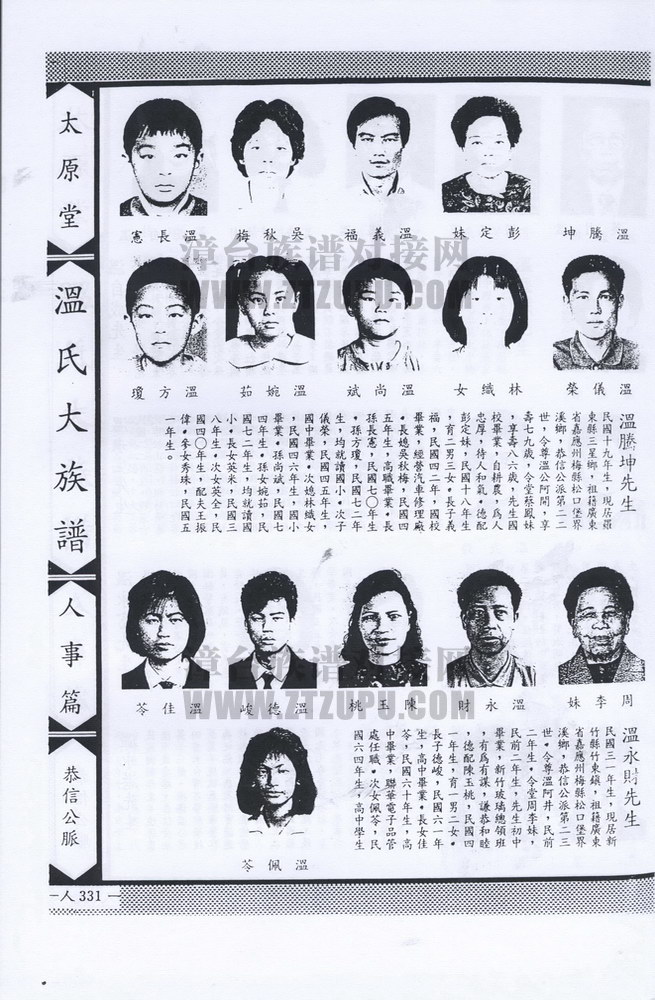 太原堂
溫氏大族譜
人事篇
恭信公脈
溫騰坤
彭定妹
溫義福
吳秋梅
溫長憲
溫儀榮
林織女
溫尚斌
溫婉茹
溫方瓊
漳台族谱对接网
WWW.ZTZUPU.COM
溫騰坤先生
民國十九年生，現居羅
東縣三星鄉，祖籍廣東
省嘉應州梅縣松口堡界
溪鄉，恭信公派第二二
世，令尊溫公阿開，享
壽七九歲，令堂蔡鳳妹
，享壽八六歲，先生國
校畢業，自耕農，爲人
忠厚，待人和氣。德配
彭定妹，民國十八年生
，育二男三女，長子義
福，民國四二年，國校
畢業，經營汽車修理廠
。長媳吳秋梅，民國四
五年生，高職畢業。長
孫長憲，民國七〇年生
。孫方瓊，民國七二年
生，均就讀國小。次子
儀榮，民國四五年生，
國中畢業。次媳林織女
，民國四六年生，國小
畢業。孫尚斌，民國七
四年生。孫女婉茹，民
國七二年生，均就讀國
小。長女英米，民國三
八年生。次女英全，民
國四〇年生，配夫王振
偉。參女秀珠，民國五
一年生。
周李妹
溫永財
陳玉桃
溫德峻
溫佳苓
溫佩苓
漳台族谱对接网
WWW.ZTZUPU.COM
溫永財先生
民國三一年生，現居新
竹縣竹東鎮，祖籍廣東
省嘉應州梅縣松口堡界
溪鄉，恭信公派第二三
世。令尊溫阿井，民前
二年生。令堂周李妹，
民前二年生，先生初中
畢業，新竹玻璃總領班
，有爲有謀，謙恭和睦
，德配陳玉桃，民國四
一年生，育一男二女。
長子德峻，民國六一年
生，高中畢業。長女佳
苓，民國六十年生，高
中畢業，聯華電子品管
處任職。次女佩苓，民
國六四年生，高中學生
人 331